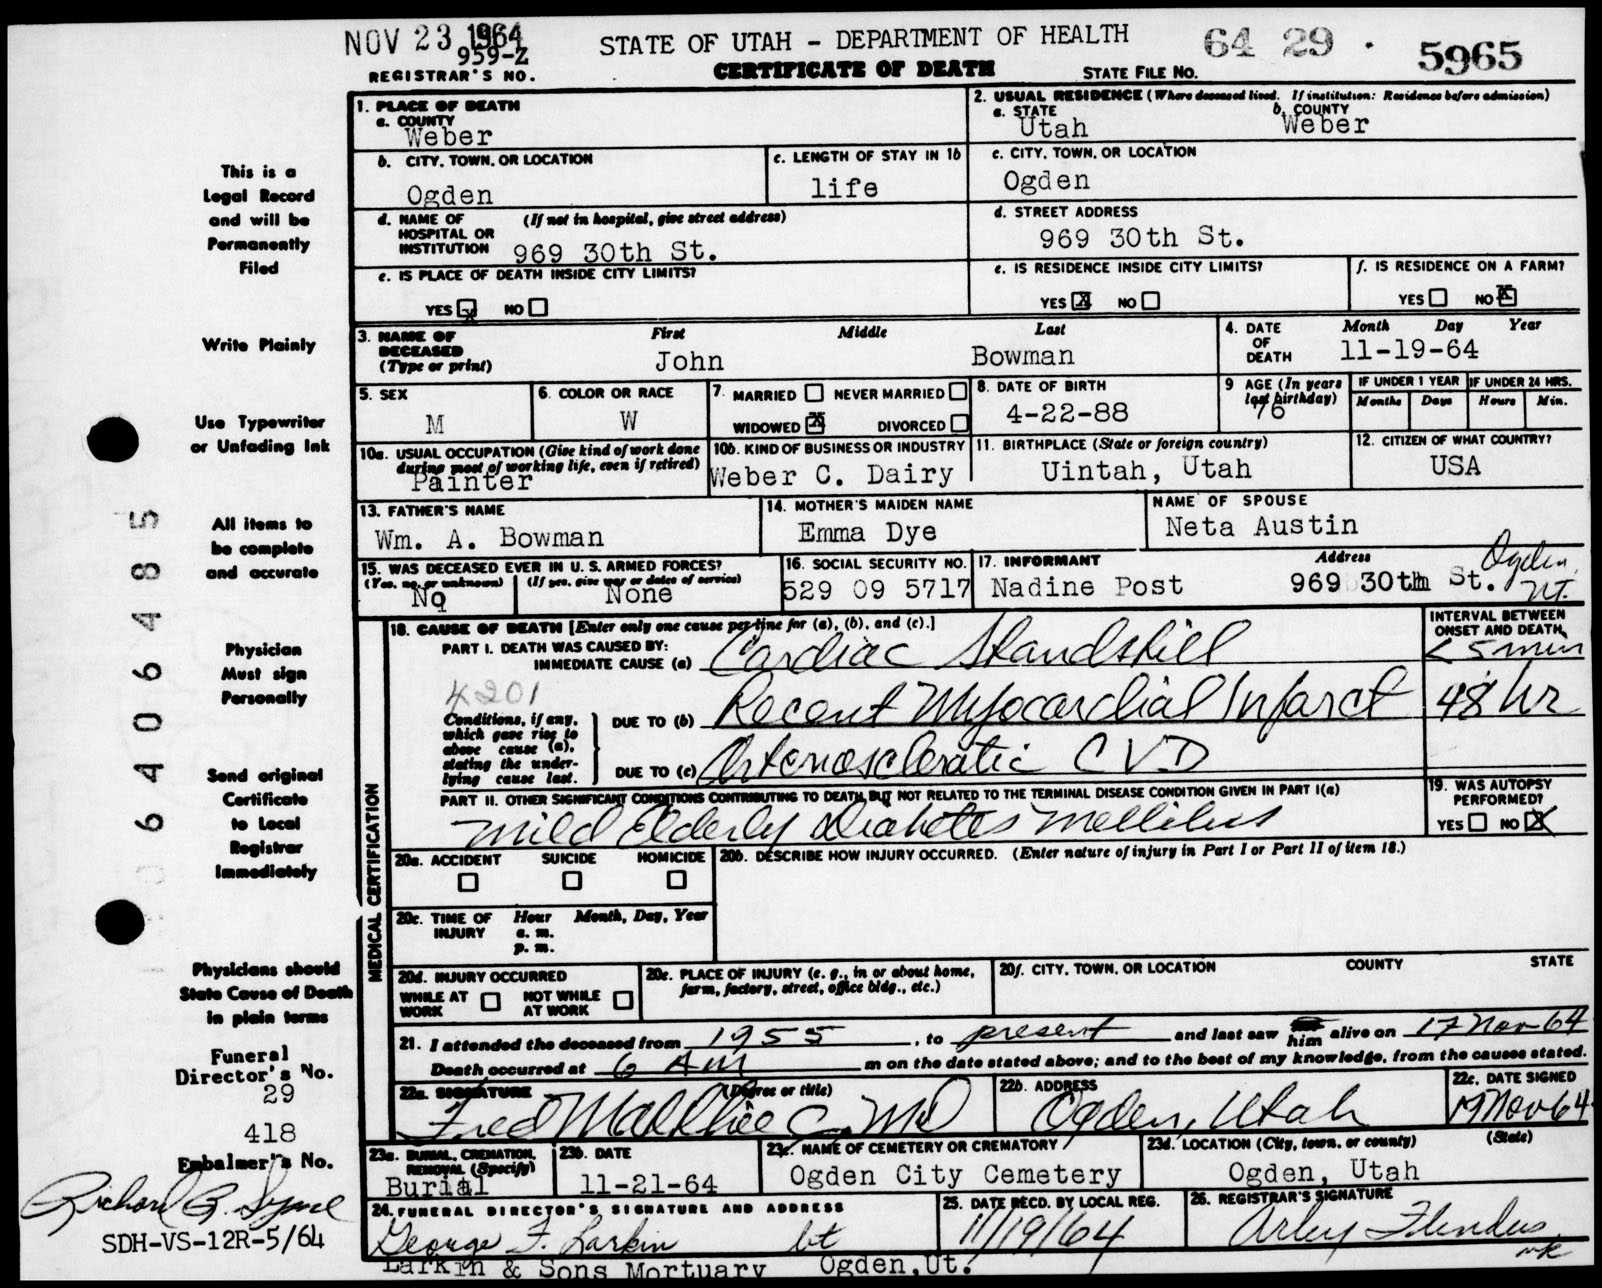 NOV 23 1964
959-Z
REGISTRAR'S NO.
STATE OF UTAH - DEPARTMENT OF HEALTH
CERTIFICATE OF DEATH
STATE FILE NO.
64 29 · 5965
This is a
Legal Record
and will be
Permanently
Filed
Write Plainly
Use Typewriter
or Unfading Ink
All items to
be complete
and accurate
Physician
Must sign
Personally
Send original
Certificate
to Local
Registrar
Immediately
Physicians should
State Cause of Death
in plain terms
Funeral
Director's No.
29
418
Embalmer's No.
SDH-VS-12R-5/64
06406485
1. PLACE OF DEATH
a. COUNTY
Weber
2. USUAL RESIDENCE (Where deceased lived. If institution: Residence before admission)
a. STATE
Utah
b. COUNTY
Weber
b. CITY, TOWN, OR LOCATION
Ogden
c. LENGTH OF STAY IN 1b
life
c. CITY, TOWN, OR LOCATION
Ogden
d. NAME OF HOSPITAL OR INSTITUTION
(If not in hospital, give street address)
969 30th St.
d. STREET ADDRESS
969 30th St.
e. IS PLACE OF DEATH INSIDE CITY LIMITS?
YES X NO
e. IS RESIDENCE INSIDE CITY LIMITS?
YES X NO
f. IS RESIDENCE ON A FARM?
YES NO X
3. NAME OF DECEASED (Type or print)
First Middle Last
John Bowman
4. DATE OF DEATH
Month Day Year
11-19-64
5. SEX
M
6. COLOR OR RACE
W
7. MARRIED NEVER MARRIED
WIDOWED X DIVORCED
8. DATE OF BIRTH
4-22-88
9 AGE (In years last birthday)
76
IF UNDER 1 YEAR
Months Days
IF UNDER 24 HRS.
Hours Min.
10a. USUAL OCCUPATION (Give kind of work done during most of working life, even if retired)
Painter
10b. KIND OF BUSINESS OR INDUSTRY
Weber C. Dairy
11. BIRTHPLACE (State or foreign country)
Uintah, Utah
12. CITIZEN OF WHAT COUNTRY?
USA
13. FATHER'S NAME
Wm. A. Bowman
14. MOTHER'S MAIDEN NAME
Emma Dye
NAME OF SPOUSE
Neta Austin
15. WAS DECEASED EVER IN U. S. ARMED FORCES?
(Yes, no, or unknown) (If yes, give war or dates of service)
No None
16. SOCIAL SECURITY NO.
529 09 5717
17. INFORMANT Address
Nadine Post 969 30th St. Ogden, Ut.
MEDICAL CERTIFICATION
18. CAUSE OF DEATH [Enter only one cause per line for (a), (b), and (c).]
INTERVAL BETWEEN ONSET AND DEATH
PART I. DEATH WAS CAUSED BY:
IMMEDIATE CAUSE (a) Cardiac Standstill < 5 min
4201
Conditions, if any, which gave rise to above cause (a), stating the underlying cause last.
DUE TO (b) Recent Myocardial Infarct 48 hr
DUE TO (c) Arteriosclerotic CVD
PART II. OTHER SIGNIFICANT CONDITIONS CONTRIBUTING TO DEATH BUT NOT RELATED TO THE TERMINAL DISEASE CONDITION GIVEN IN PART I(a)
Mild Elderly Diabetes Mellitus
19. WAS AUTOPSY PERFORMED?
YES NO X
20a. ACCIDENT SUICIDE HOMICIDE
20b. DESCRIBE HOW INJURY OCCURRED. (Enter nature of injury in Part I or Part II of item 18.)
20c. TIME OF INJURY
Hour Month, Day, Year
a. m.
p. m.
20d. INJURY OCCURRED
WHILE AT WORK NOT WHILE AT WORK
20e. PLACE OF INJURY (e. g., in or about home, farm, factory, street, office bldg., etc.)
20f. CITY, TOWN, OR LOCATION COUNTY STATE
21. I attended the deceased from 1955, to present and last saw him alive on 17 Nov 64
Death occurred at 6 AM m on the date stated above; and to the best of my knowledge, from the causes stated.
22a. SIGNATURE (Degree or title)
22b. ADDRESS
Ogden, Utah
22c. DATE SIGNED
19 Nov 64
23a. BURIAL, CREMATION, REMOVAL (Specify)
Burial
23b. DATE
11-21-64
23c. NAME OF CEMETERY OR CREMATORY
Ogden City Cemetery
23d. LOCATION (City, town, or county) (State)
Ogden, Utah
24. FUNERAL DIRECTOR'S SIGNATURE AND ADDRESS
George F. Larkin
Larkin & Sons Mortuary Ogden,Ut.
25. DATE RECD. BY LOCAL REG.
11/19/64
26. REGISTRAR'S SIGNATURE